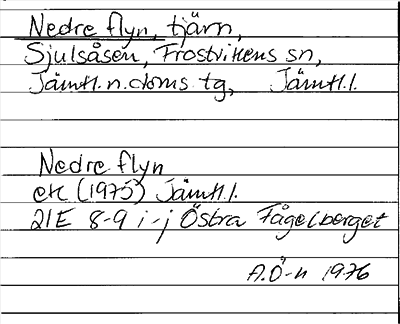 Nedre flyn, tjärn,
Sjulsåsen, Frostvikens sn,
Jämtl.n.doms tg, Jämtl.l.
Nedre flyn
ek (1975) Jämtl.l.
21E 8-9 i-j Östra Fågelberget
A.Ö-n 1976